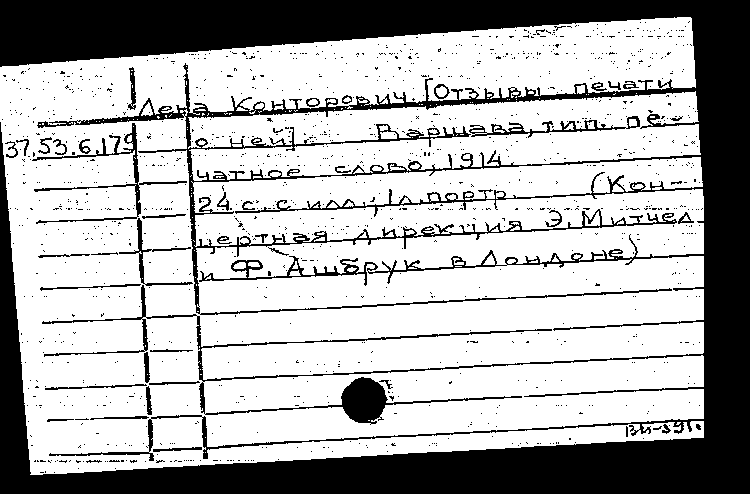 Лена Конторович. [Отзывы печати
37.53.6.179 о ней]. Варшава, тип. "Пе-
чатное слово", 1914.
24 с. с илл.; 1л. портр. (Кон-
цертная дирекция Э. Митчел
и Ф. Ашбрук в Лондоне).